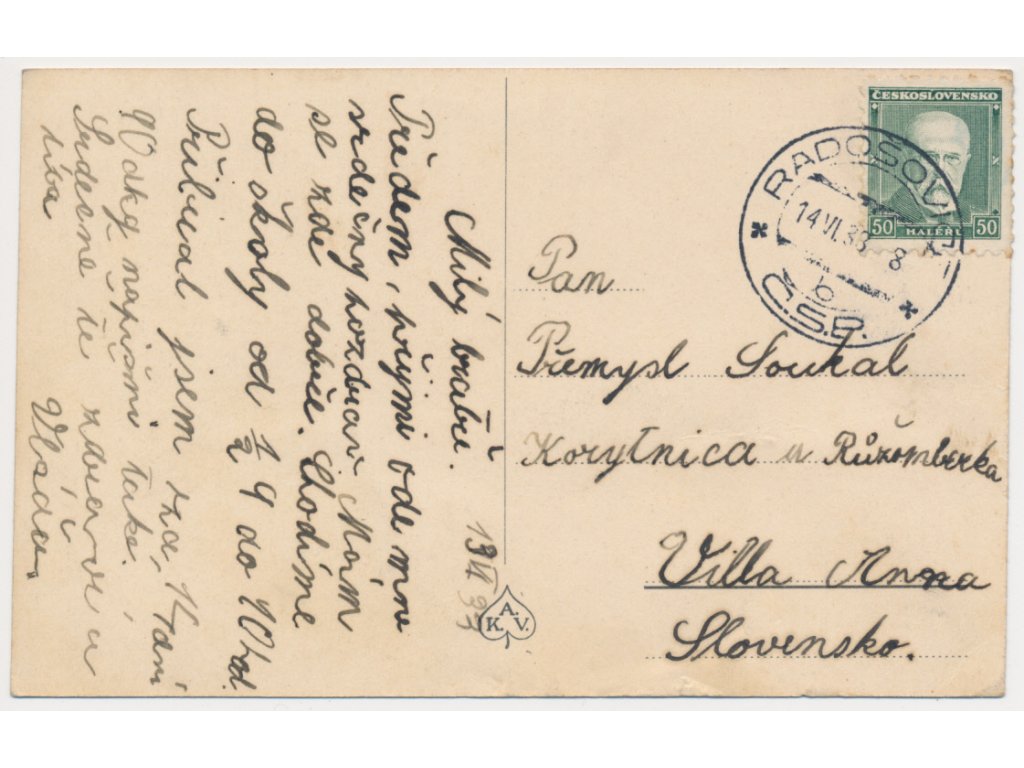 Milý bratře. 13/VI 33
Předem přijmi ode mne
srdečný pozdrav. Mám
se zde dobře. Chodíme
do školy od ½ 9 do 10 hod.
Přibral jsem za 14 dní
90 dkg napiš mi také.
Srdečně tě zdraví a
líbá Vláďa.
ČESKOSLOVENSKO
50 HALÉŘŮ 50
RADOŠOV
14.VI.33 8
b
Č.S.P.
Pan
Přemysl Soukal
Korytnica u Růžomberka
Villa Anna
Slovensko.
A.
K. V.